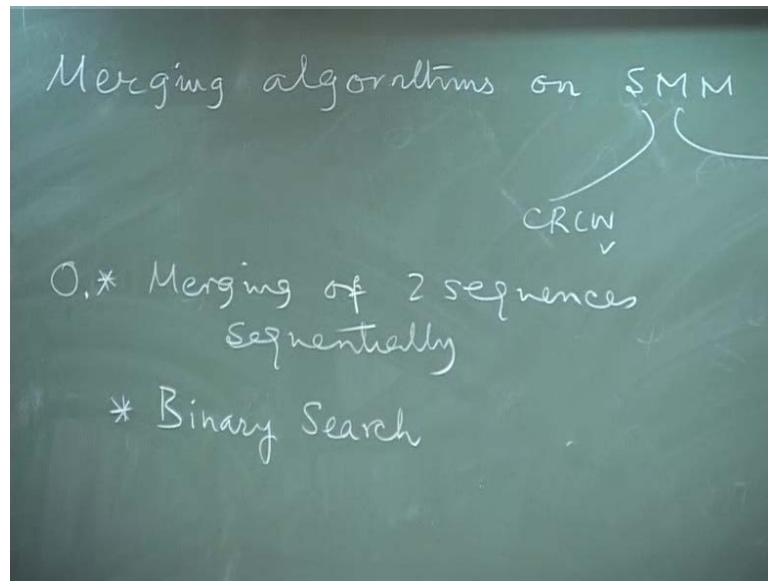 Merging algorithms on SMM
CRCW
0.* Merging of 2 sequences
sequentially
* Binary Search